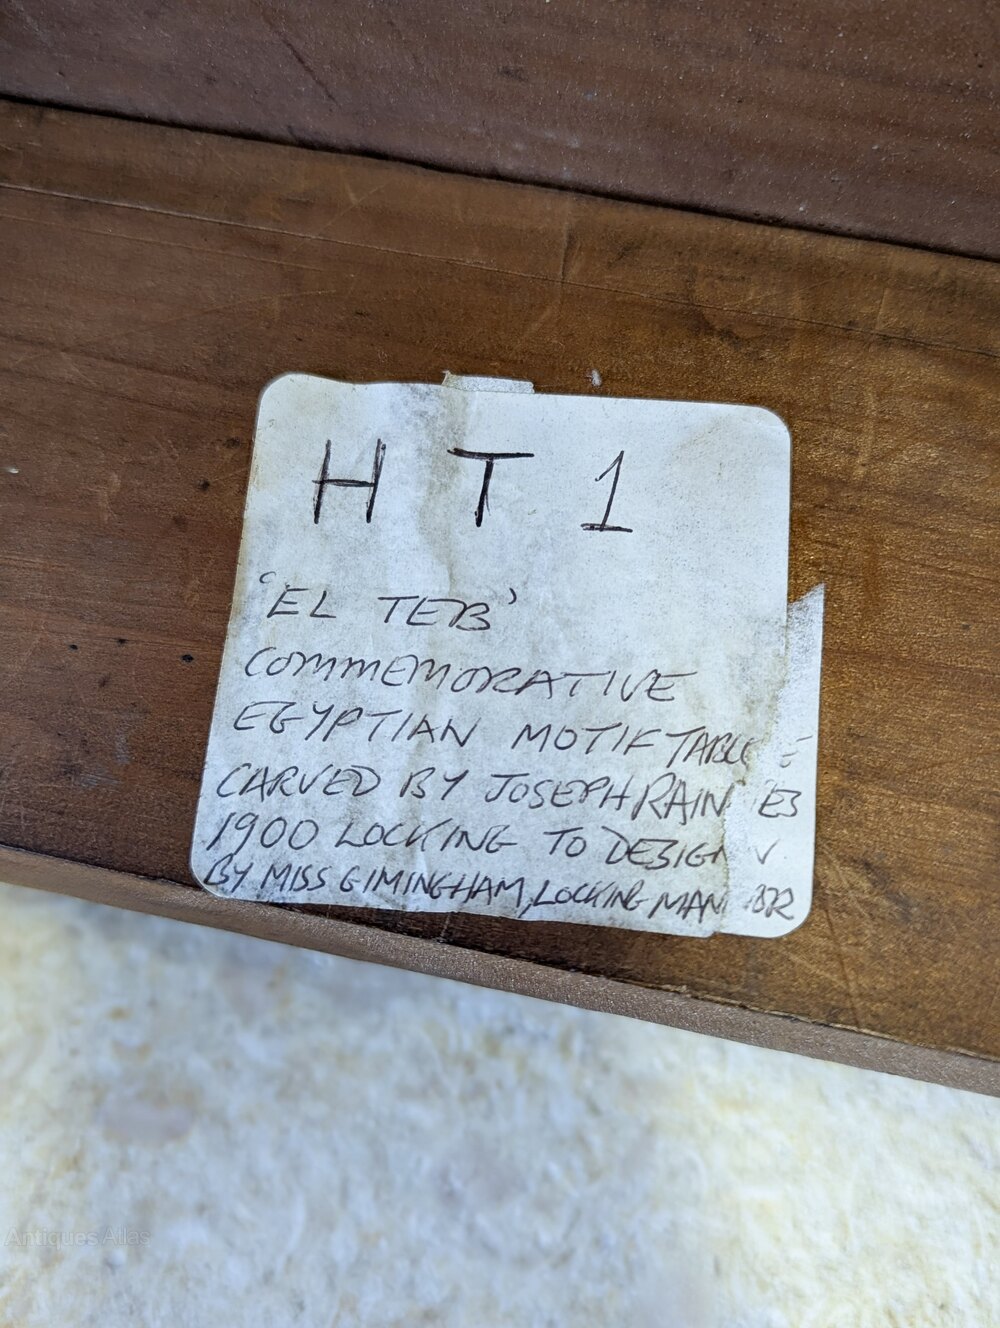 H T 1
'EL TEB'
COMMEMORATIVE
EGYPTIAN MOTIF TABLE
CARVED BY JOSEPH RAINES
1900 LOCKING TO DESIGN
BY MISS GIMINGHAM, LOCKING MANOR
Antiques Atlas